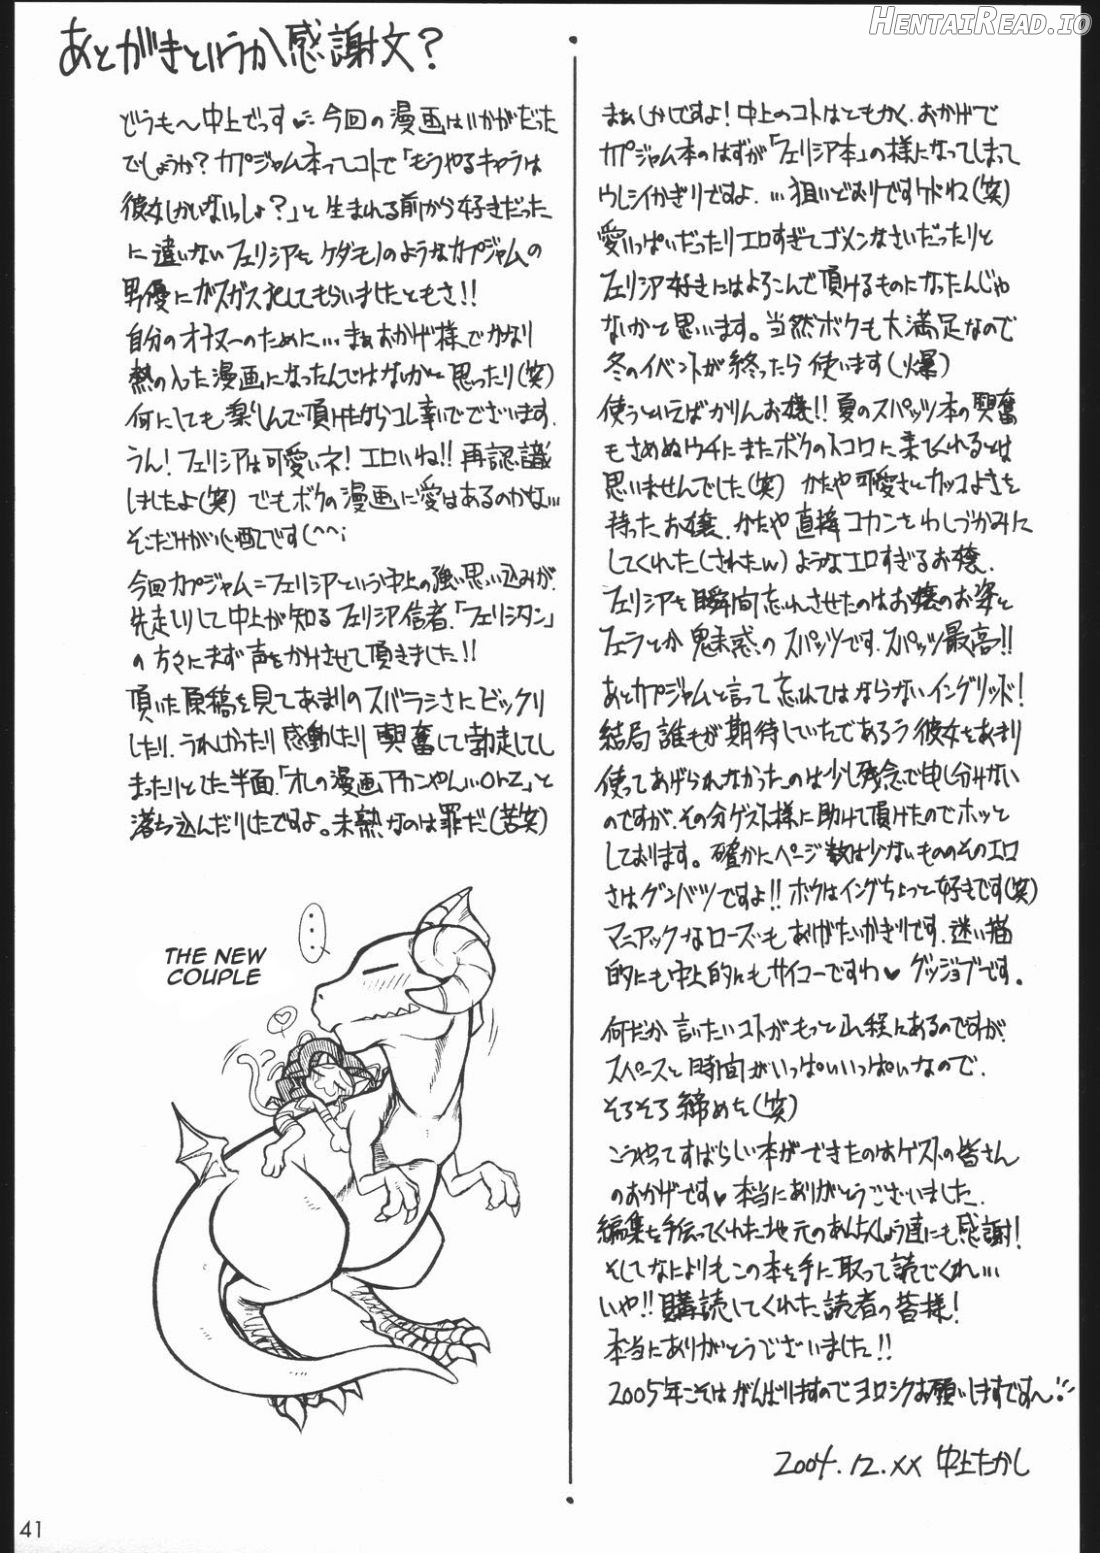 HENTAIREAD.IO
あとがきというか感謝文?
どうも〜中上でっす♥ニ 今回の漫画はいかがだった
でしょうか?カプジャム本ってコトで「もうやるキャラは
彼女しかいないっしょ?」と生まれる前から好きだった
に違いないフェリシアをケダモノのようなカプジャムの
男優にガスガス犯してもらいましたともさ!!
自分のオナヌーのために…まぁおかげ様でかなり
熱の入った漫画になったんではないかと思ったり(笑)
何にしても楽しんで頂けたならコレ幸いでございます.
うん!フェリシアは可愛いネ!エロいね!!再認識
しましたよ(笑) でもボクの漫画に愛はあるのかな…
そこだけが心配です(^^;
今回カプジャム=フェリシアという中上の強い思い込みが.
先走りして中上が知るフェリシア信者.「フェリシタン」
の方々にまず声をかけさせて頂きました!!
頂いた原稿を見てあまりのスバラシさにビックリ
したり.うれしかったり感動したり興奮して勃走してし
まったりとした半面.「オレの漫画アカンやん…orz」と
落ち込んだりしたですよ。未熟なのは罪だ(苦笑)
THE NEW
COUPLE
41
まぁしかしですよ!中上のコトはともかく.おかげで
カプジャム本のはずが「フェリシア本」の様になってしまって
ウレシイかぎりですよ. …狙いどおりですケドね(笑)
愛いっぱいだったりエロすぎてゴメンなさいだったりと
フェリシア好きにはよろこんで頂けるものになったんじゃ
ないかと思います。当然ボクも大満足なので
冬のイベントが終ったら使います(爆)
使うといえばかりんお嬢!!夏のスパッツ本の興奮
もさめぬウチにまたボクのトコロに来てくれるとは
思いませんでした(笑) かたや可愛さとカッコよさを
持ったお嬢.かたや直接コカンをわしづかみに
してくれた(されたw)ようなエロすぎるお嬢.
フェリシアを瞬間忘れさせたのはお嬢のお姿と
フェラとか魅惑のスパッツです.スパッツ最高!!
あとカプジャムと言って忘れてはならないイングリッド!
結局誰もが期待していたであろう彼女をあまり
使ってあげられなかったのは少し残念で申し分けない
のですが.その分ゲスト様に助けて頂けたのでホッと
しております。確かにページ数は少ないもののそのエロ
さはゲンバツですよ!!ボクはイングちょっと好きです(笑)
マニアックなローズもありがたいかぎりです.迷い猫
的にも中上的にもサイコーですわ♥ グッジョブです.
何だか言いたいコトがもっと山程にあるのですが.
スペースと時間がいっぱいいっぱいなので.
そろそろ締めを(笑)
こうやってすばらしい本ができたのはゲストの皆さん
のおかげです♥ 本当にありがとうございました.
編集を手伝ってくれた地元のあんちくしょう達にも感謝!
そしてなによりもこの本を手に取って読でくれ…
いや!!購読してくれた読者の皆様!
本当にありがとうございました!!
2005年こそはがんばりますのでヨロシクお願いしますです〜!!
2004.12.XX 中上たかし